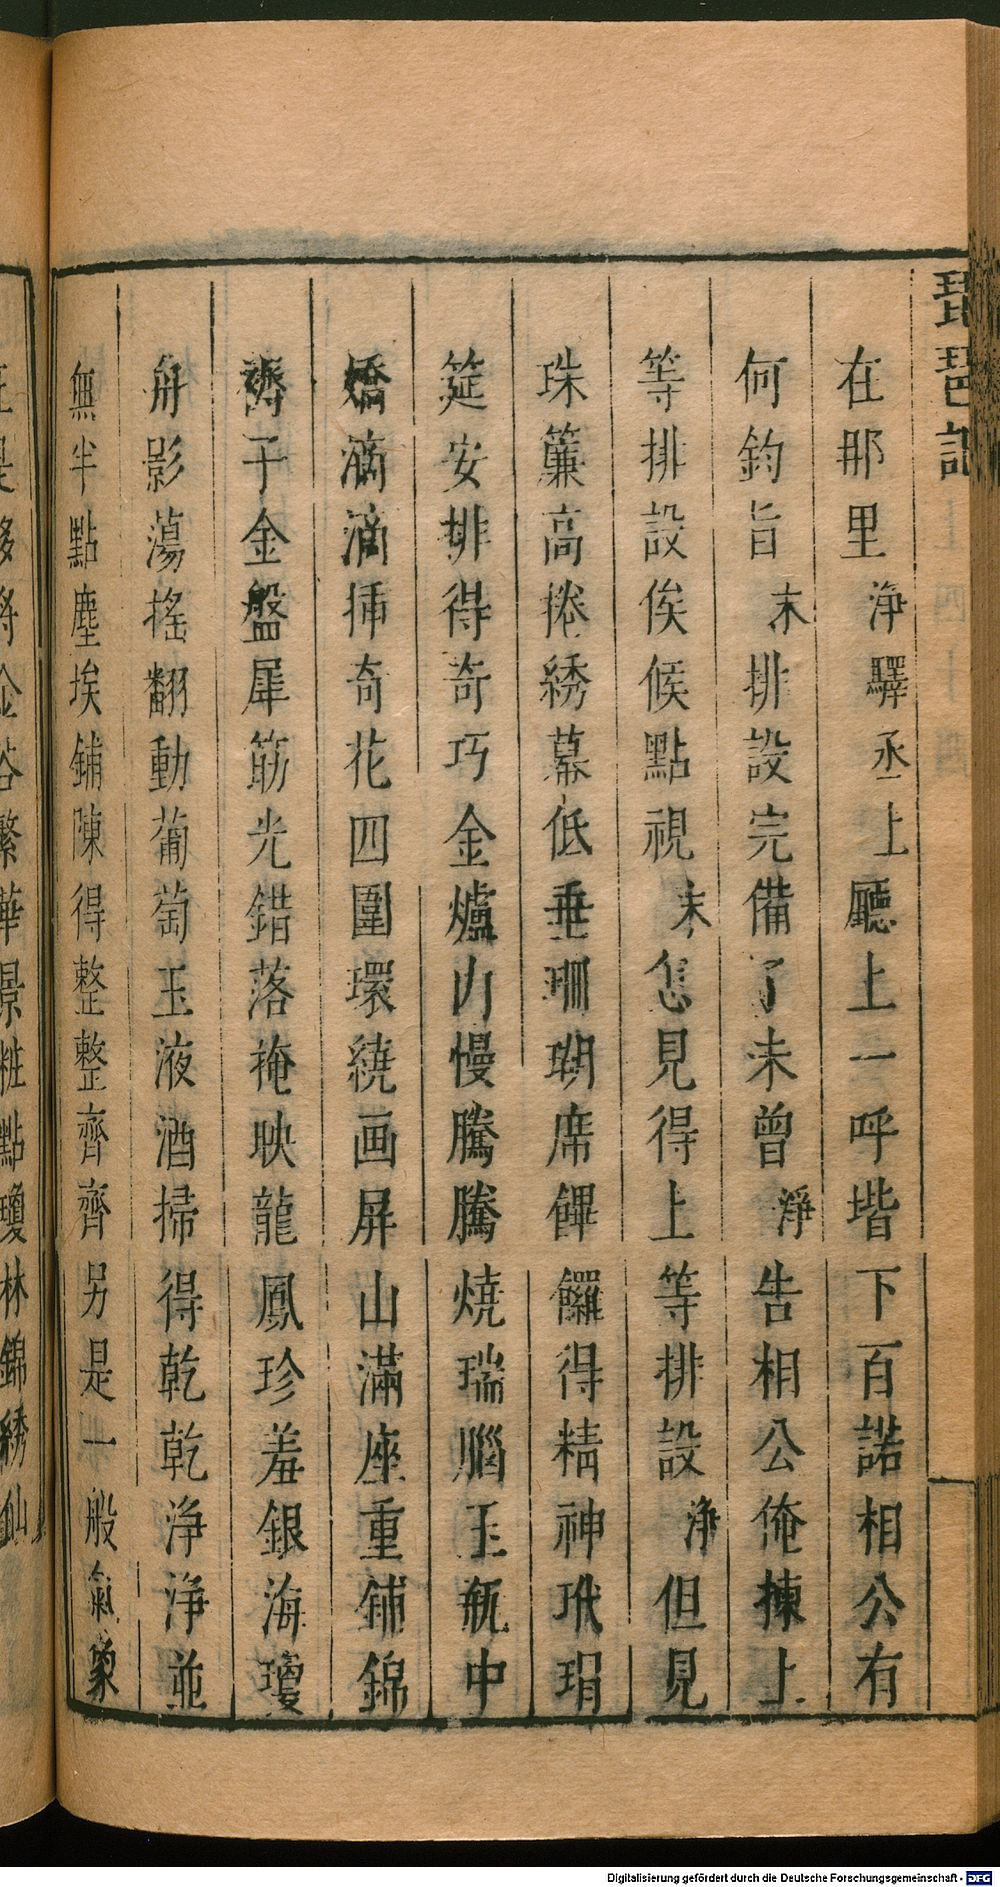 琵琶記
在那里淨驛丞上廳上一呼堦下百諾相公有
何鈞旨末排設完備了未曾淨告相公俺揀上
等排設俟候點視末怎見得上等排設淨但見
珠簾高捲綉幕低垂珊瑚席饆饠得精神玳瑁
筵安排得奇巧金爐內慢騰騰燒瑞腦玉瓶中
嬌滴滴揷奇花四圍環繞画屏山滿座重鋪錦
褥子金盤犀筯光錯落掩映龍鳳珍羞銀海瓊
舟影蕩搖翻動葡萄玉液酒掃得乾乾淨淨並
無半點塵埃鋪陳得整整齊齊另是一般氣象
金谷繁華景粧點瓊林錦綉仙
Digitalisierung gefördert durch die Deutsche Forschungsgemeinschaft - DFG